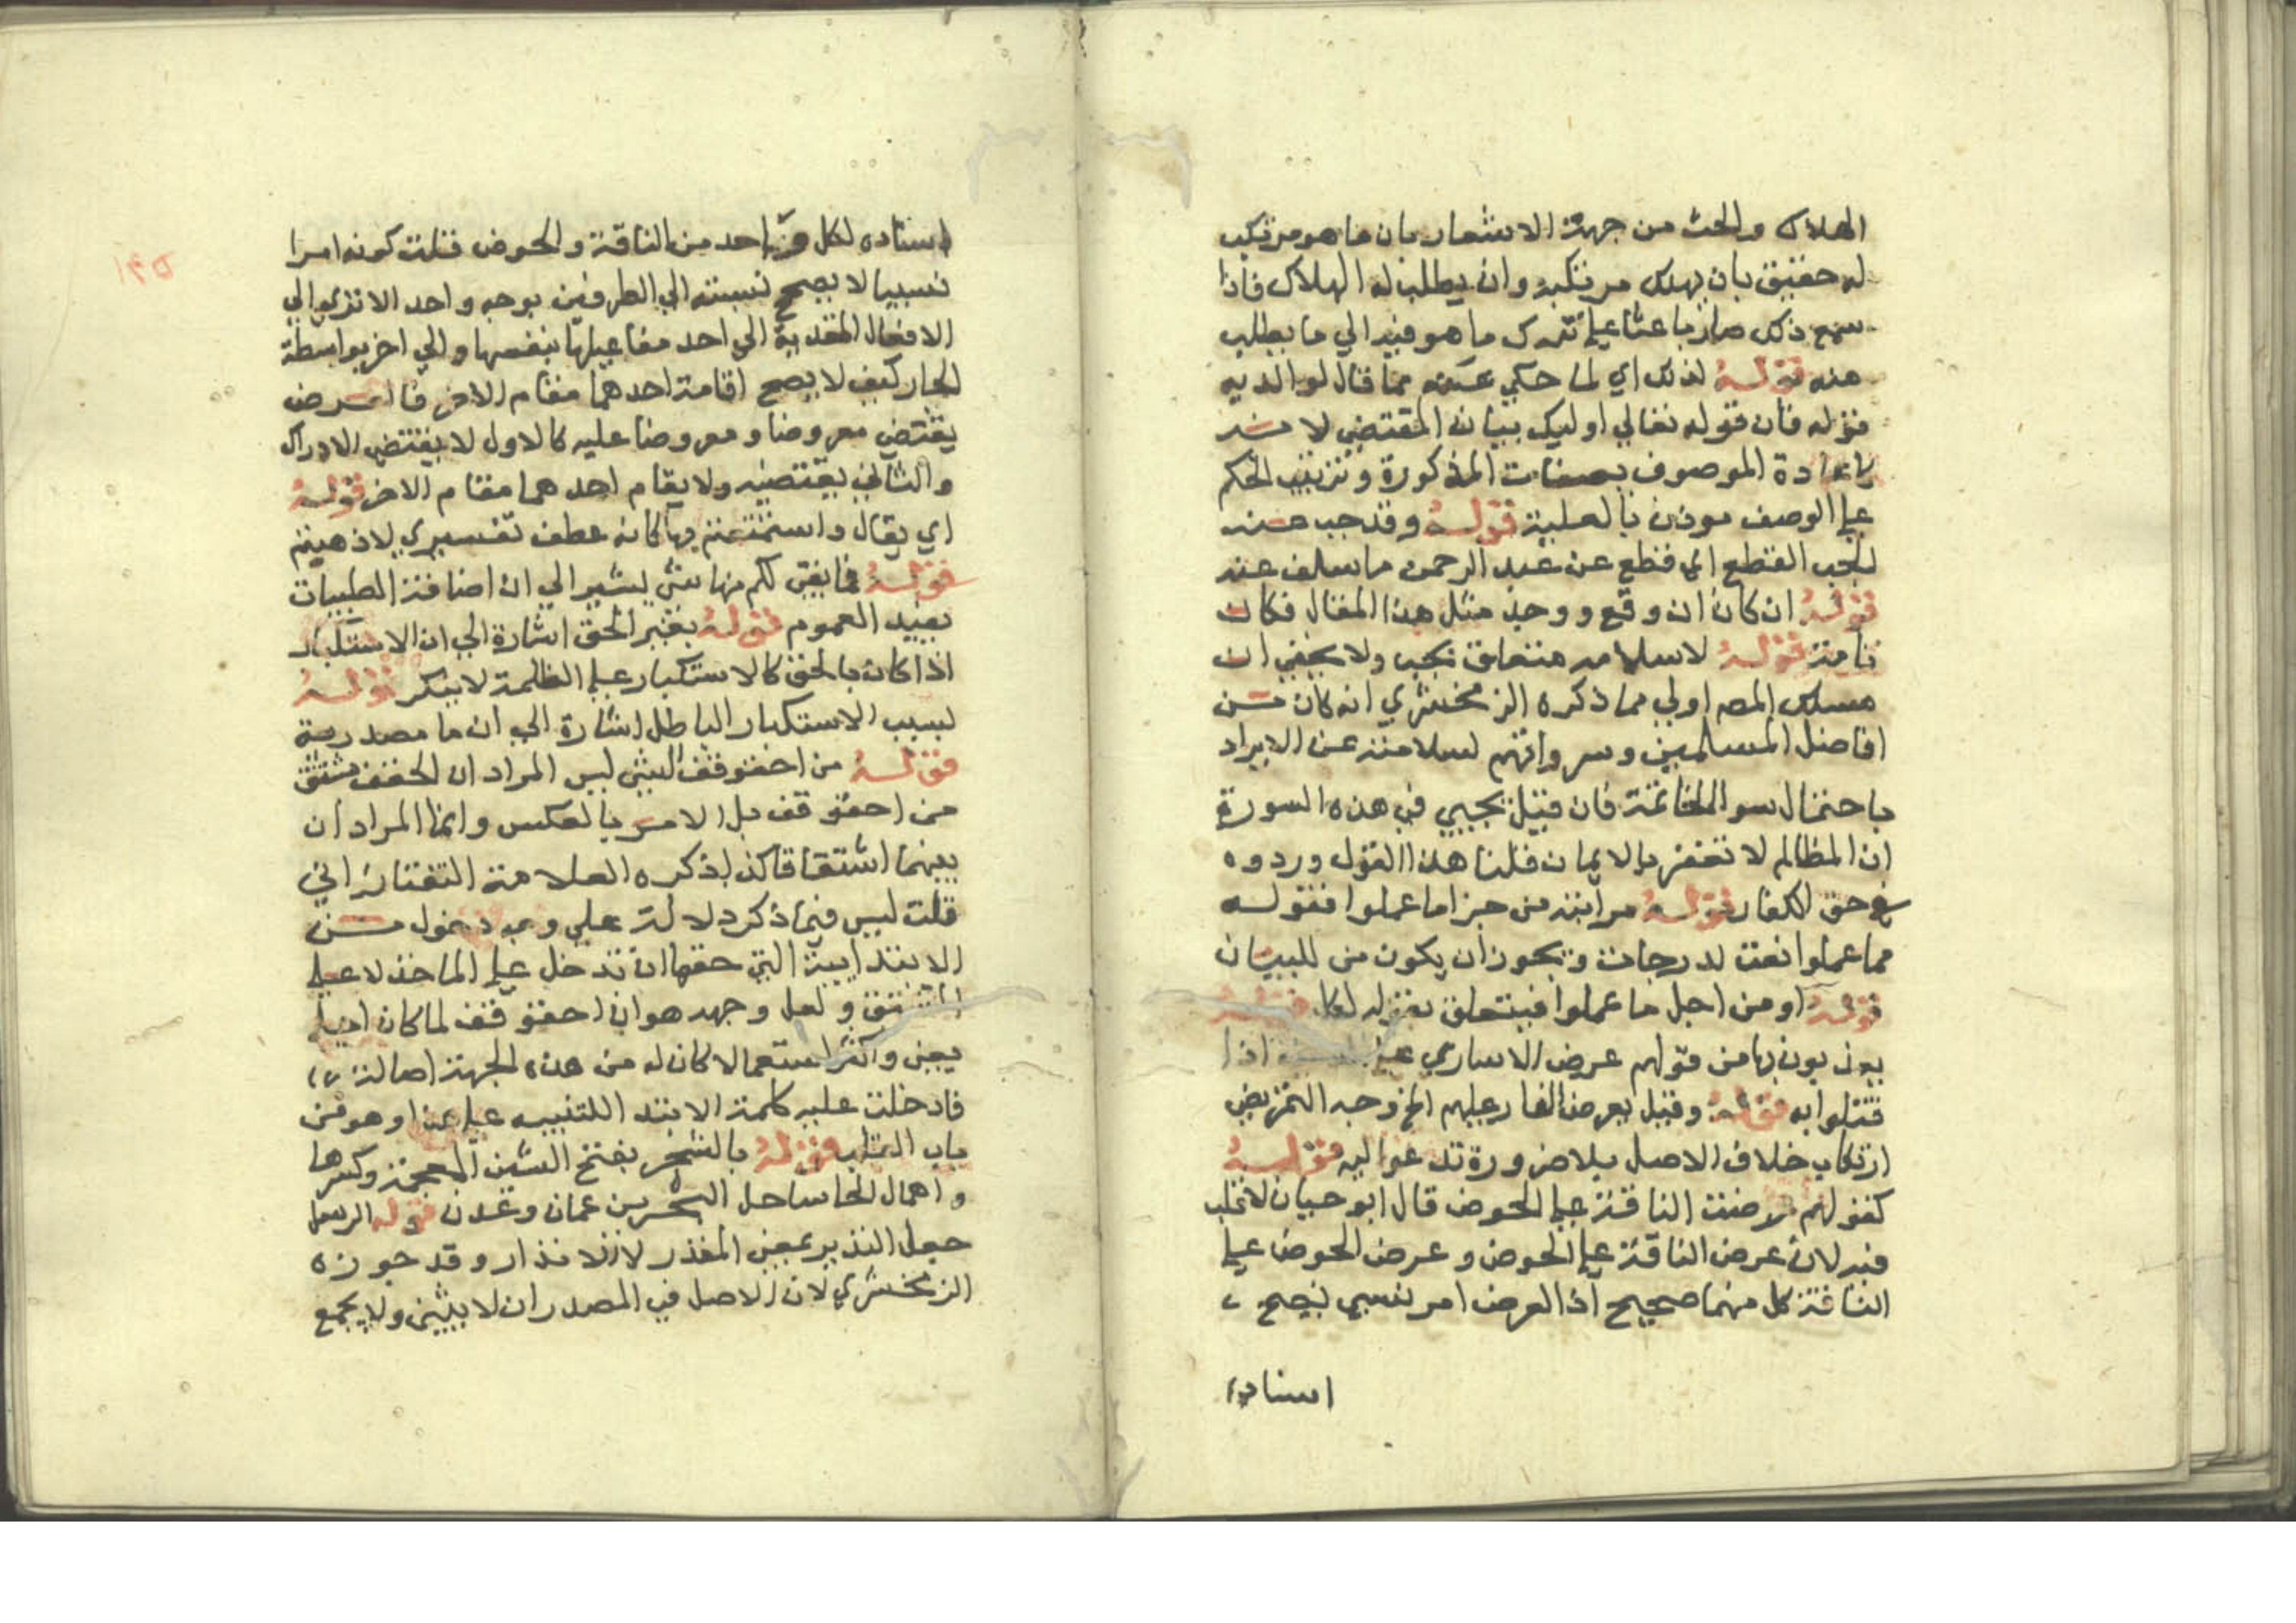 الهلاك والحث من جهة الاشعار بان ما هو مرتكب
له حقيق بان يهلك مرتكبه وان يطلب له الهلاك فاذا
سمع ذلك صار باعثا علي ترك ما هو فيه الي ما يطلب
منه قوله لذلك اي لما حكي عنه مما قال لوالديه
قوله فان قوله تعالي اوليك بيان المقتضي لا
باعادة الموصوف بصفات المذكورة وترتيب الحكم
علي الوصف موذن بالعلية قوله وقد جب عنه
لجب القطع اي قطع عن عبد الرحمن ما سلف عنه
قوله ان كان ان وقع ووجد مثل هذا المقال فكان
تامة قوله لاسلامه متعلق بجب ولا يخفي ان
مسلك المصـ اولي مما ذكره الزمخشري انه كان من
افاضل المسلمين وسرواتهم لسلامته عن الايراد
باحتمال سو الخاتمة فان قيل يجيي في هذه السورة
ان المظالم لا تغفر بالايمان قلنا هذا القول وردوه
في حق الكفار قوله مراتب من جزا ما عملوا فقوله
مما عملوا نعت لدرجات ويجوز ان يكون من للبيان
قوله او من اجل ما عملوا فيتعلق بقوله لكل قوله
يعذبون بها من قولهم عرض الاساري علي السيف اذا
قتلوا به قوله وقيل يعرض النار عليهم الخ وجه التمريض
ارتكاب خلاف الاصل بلا ضرورة تدعوا اليه قوله
كقولهم عرضت الناقة علي الحوض قال ابو حيان لا قلب
فيه لان عرض الناقة علي الحوض وعرض الحوض علي
الناقة كل منهما صحيح اذ العرض امر نسبي يصح
اسناده
١٣٥
اسناده لكل واحد من الناقة والحوض قلت كونه امرا
نسبيا لا يصح نسبته الي الطرفين بوجه واحد الا تري الي
الافعال المتعدية الي احد مفاعيلها بنفسها والي اخر بواسطة
الجار كيف لا يصح اقامة احدهما مقام الاخر فالعرض
يقتضي معروضا ومعروضا عليه كالاول لا يقتضي الادراك
والثاني يقتضيه ولا يقام احدهما مقام الاخر قوله
اي يقال واستمتعتم بها كانه عطف تفسيري لاذهبتم
قوله فما بقي لكم منها شي يشير الي ان اضافة الطيبات
يفيد العموم قوله بغير الحق اشارة الي ان الاستكبار
اذا كان بالحق كالاستكبار علي الظلمة لا ينكر قوله
بسبب الاستكبار الباطل اشارة الي ان ما مصدرية
قوله من احقوقف الشي ليس المراد ان الحقف مشتق
من احقوقف بل الامر بالعكس وانما المراد ان
بينهما اشتقاقا كذا ذكره العلامة التفتازاني
قلت ليس فيما ذكر دلالة علي وجه دخول من
الابتدايية التي حقها ان تدخل علي الماخذ لا علي
المشتق ولعل وجهه هو ان احقوقف لما كان اجلي
يعني واكثر استعمالا كان له من هذه الجهة اصالة
فادخلت عليه كلمة الابتدا للتنبيه علي هذا وهو من
باب القلب قوله بالشحر بفتح الشين المعجمة وكسرها
واهمال الحا ساحل البحر بين عمان وعدن قوله الرسل
جعل النذير بمعني المنذر لا الانذار وقد جوزه
الزمخشري لان الاصل في المصدر ان لا يثني ولا يجمع